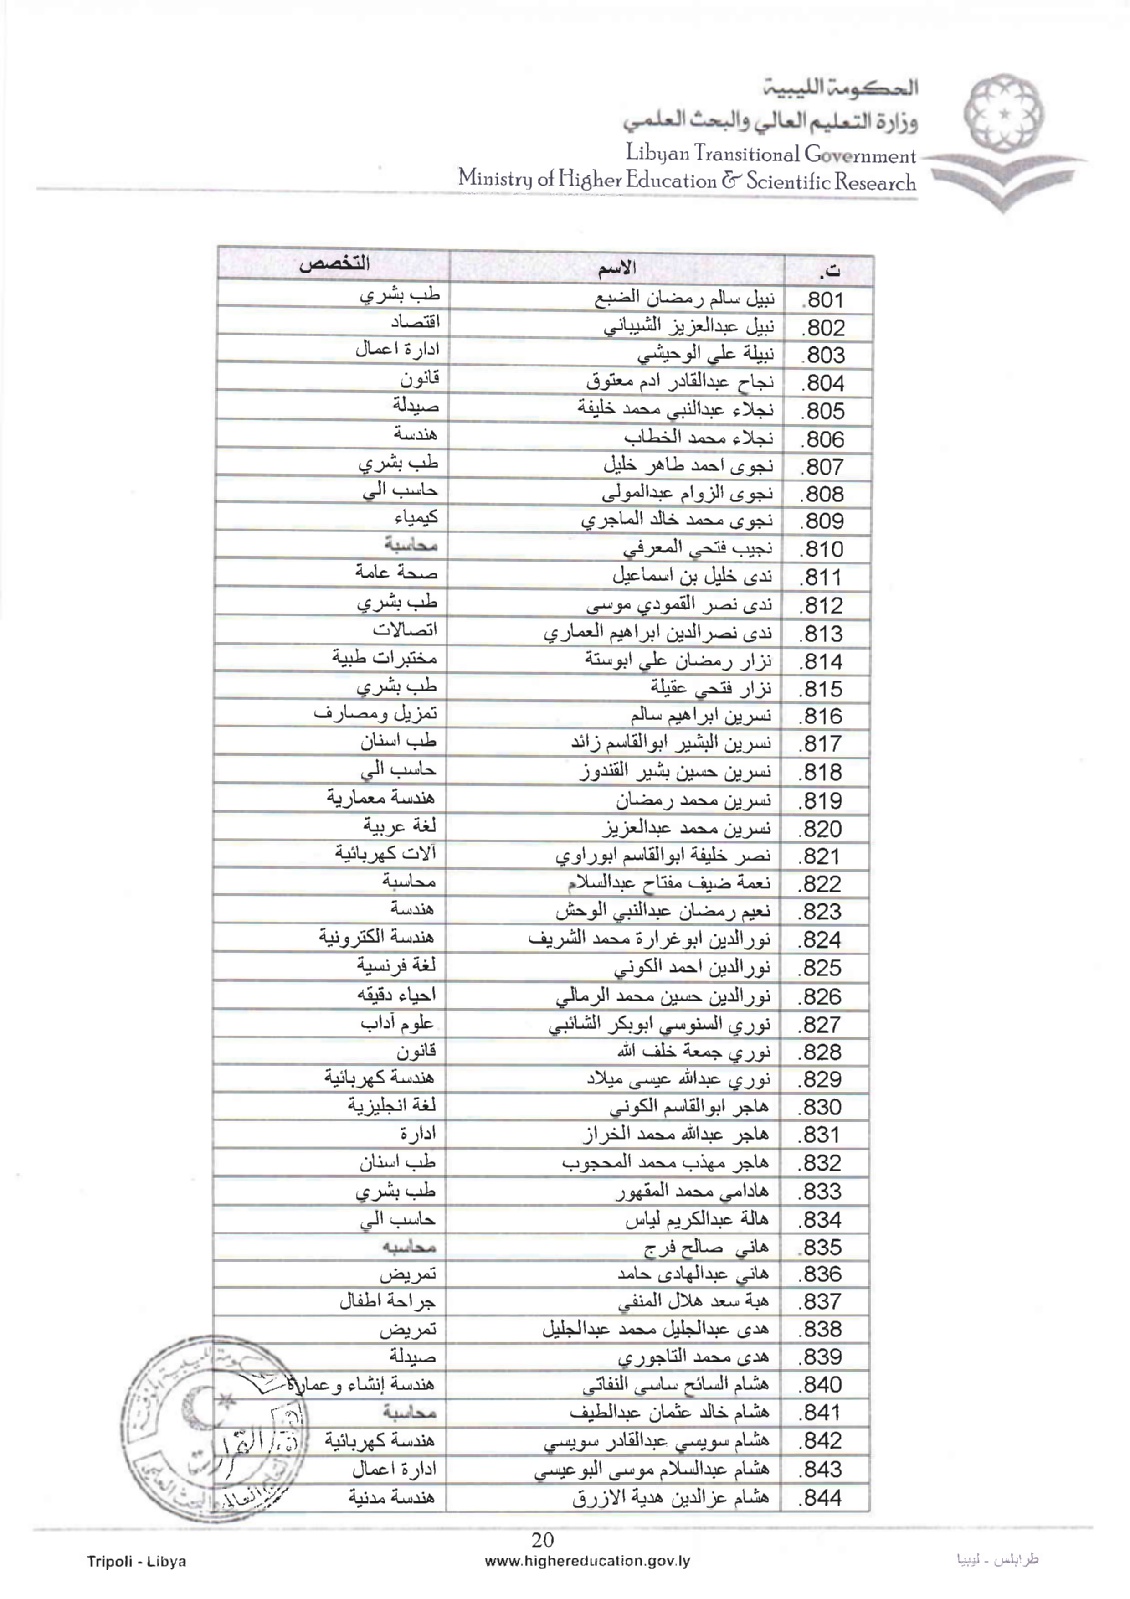 الحكومة الليبية
وزارة التعليم العالي والبحث العلمي
Libyan Transitional Government
Ministry of Higher Education & Scientific Research
ت. الاسم التخصص
801. نبيل سالم رمضان الضبع طب بشري
802. نبيل عبدالعزيز الشيباني اقتصاد
803. نبيلة علي الوحيشي ادارة اعمال
804. نجاح عبدالقادر ادم معتوق قانون
805. نجلاء عبدالنبي محمد خليفة صيدلة
806. نجلاء محمد الخطاب هندسة
807. نجوى احمد طاهر خليل طب بشري
808. نجوى الزوام عبدالمولى حاسب الي
809. نجوى محمد خالد الماجري كيمياء
810. نجيب فتحي المعرفي محاسبة
811. ندى خليل بن اسماعيل صحة عامة
812. ندى نصر القمودي موسى طب بشري
813. ندى نصرالدين ابراهيم العماري اتصالات
814. نزار رمضان علي ابوستة مختبرات طبية
815. نزار فتحي عقيلة طب بشري
816. نسرين ابراهيم سالم تمزيل ومصارف
817. نسرين البشير ابوالقاسم زائد طب اسنان
818. نسرين حسين بشير القندوز حاسب الي
819. نسرين محمد رمضان هندسة معمارية
820. نسرين محمد عبدالعزيز لغة عربية
821. نصر خليفة ابوالقاسم ابوراوي آلات كهربائية
822. نعمة ضيف مفتاح عبدالسلام محاسبة
823. نعيم رمضان عبدالنبي الوحش هندسة
824. نورالدين ابوغرارة محمد الشريف هندسة الكترونية
825. نورالدين احمد الكوني لغة فرنسية
826. نورالدين حسين محمد الرمالي احياء دقيقه
827. نوري السنوسي ابوبكر الشائبي علوم آداب
828. نوري جمعة خلف الله قانون
829. نوري عبدالله عيسى ميلاد هندسة كهربائية
830. هاجر ابوالقاسم الكوني لغة انجليزية
831. هاجر عبدالله محمد الخراز ادارة
832. هاجر مهذب محمد المحجوب طب اسنان
833. هادامي محمد المقهور طب بشري
834. هالة عبدالكريم لياس حاسب الي
835. هاني صالح فرج محاسبه
836. هاني عبدالهادى حامد تمريض
837. هبة سعد هلال المنفي جراحة اطفال
838. هدى عبدالجليل محمد عبدالجليل تمريض
839. هدى محمد التاجوري صيدلة
840. هشام السائح ساسي النفاتي هندسة إنشاء وعمارة
841. هشام خالد عثمان عبدالطيف محاسبة
842. هشام سويسي عبدالقادر سويسي هندسة كهربائية
843. هشام عبدالسلام موسى البوعيسي ادارة اعمال
844. هشام عزالدين هدية الازرق هندسة مدنية
20
Tripoli - Libya www.highereducation.gov.ly طرابلس - ليبيا